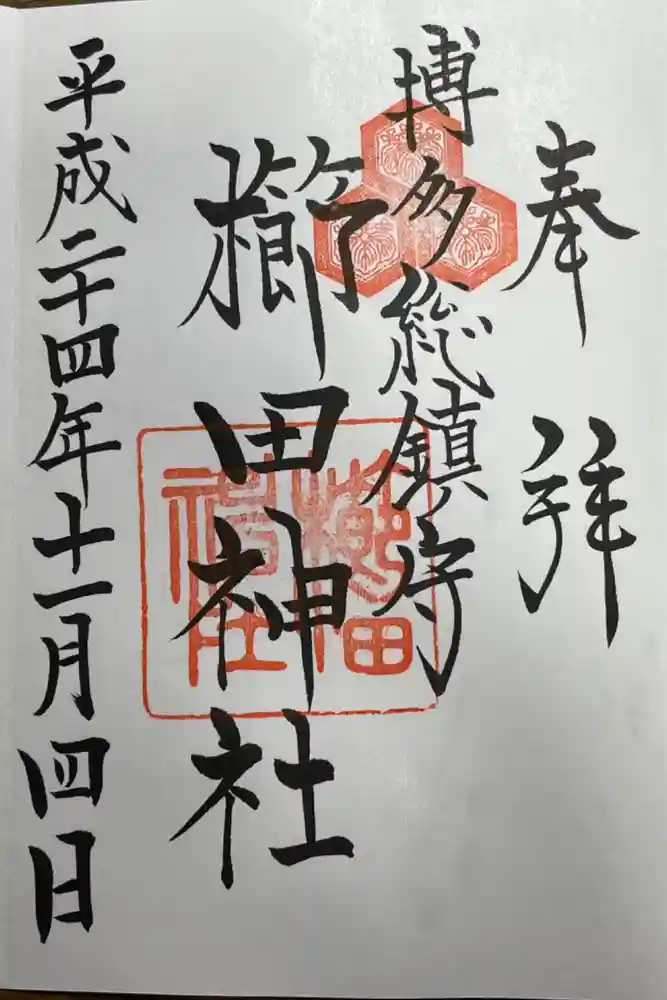 奉拝
博多総鎮守
櫛田神社
櫛田
神社
平成二十四年十一月四日